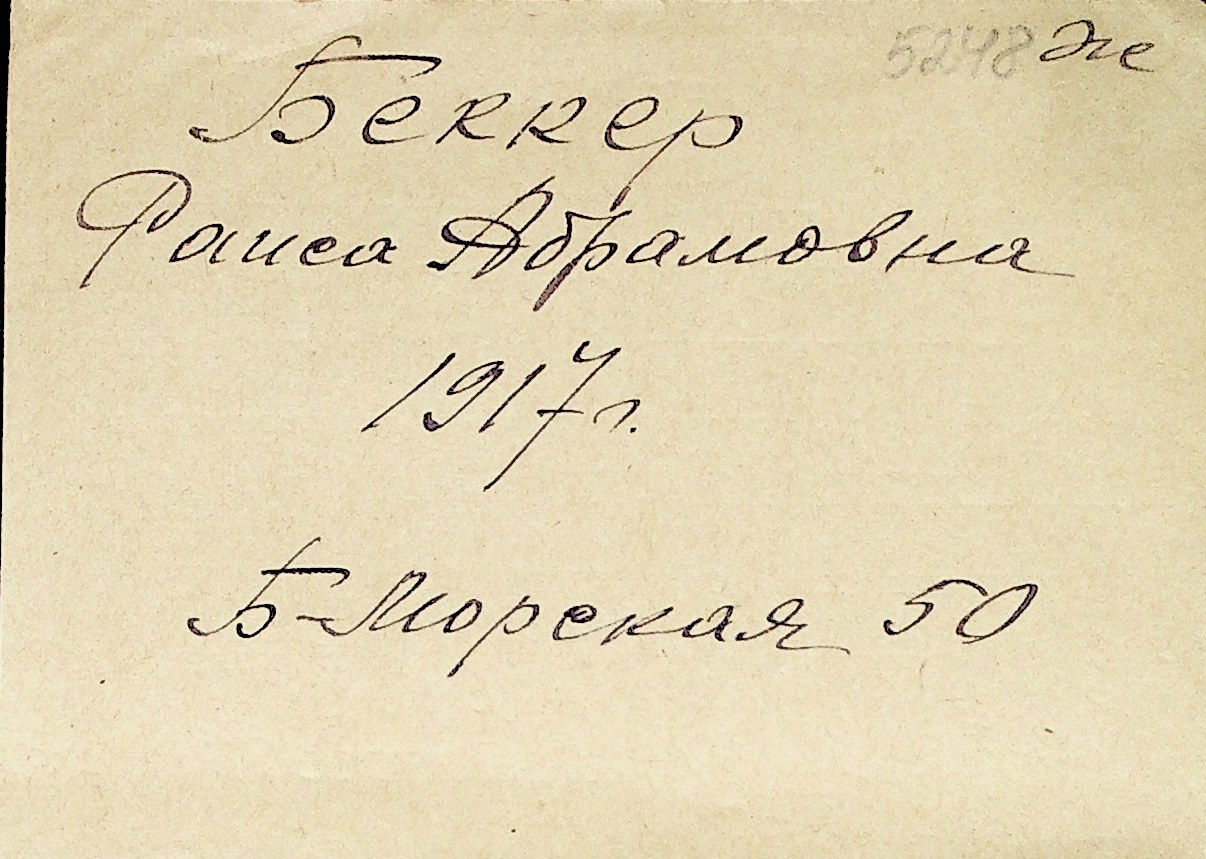 5248 ж
Беккер
Раиса Абрамовна
1917 г.
Б-Морская 50